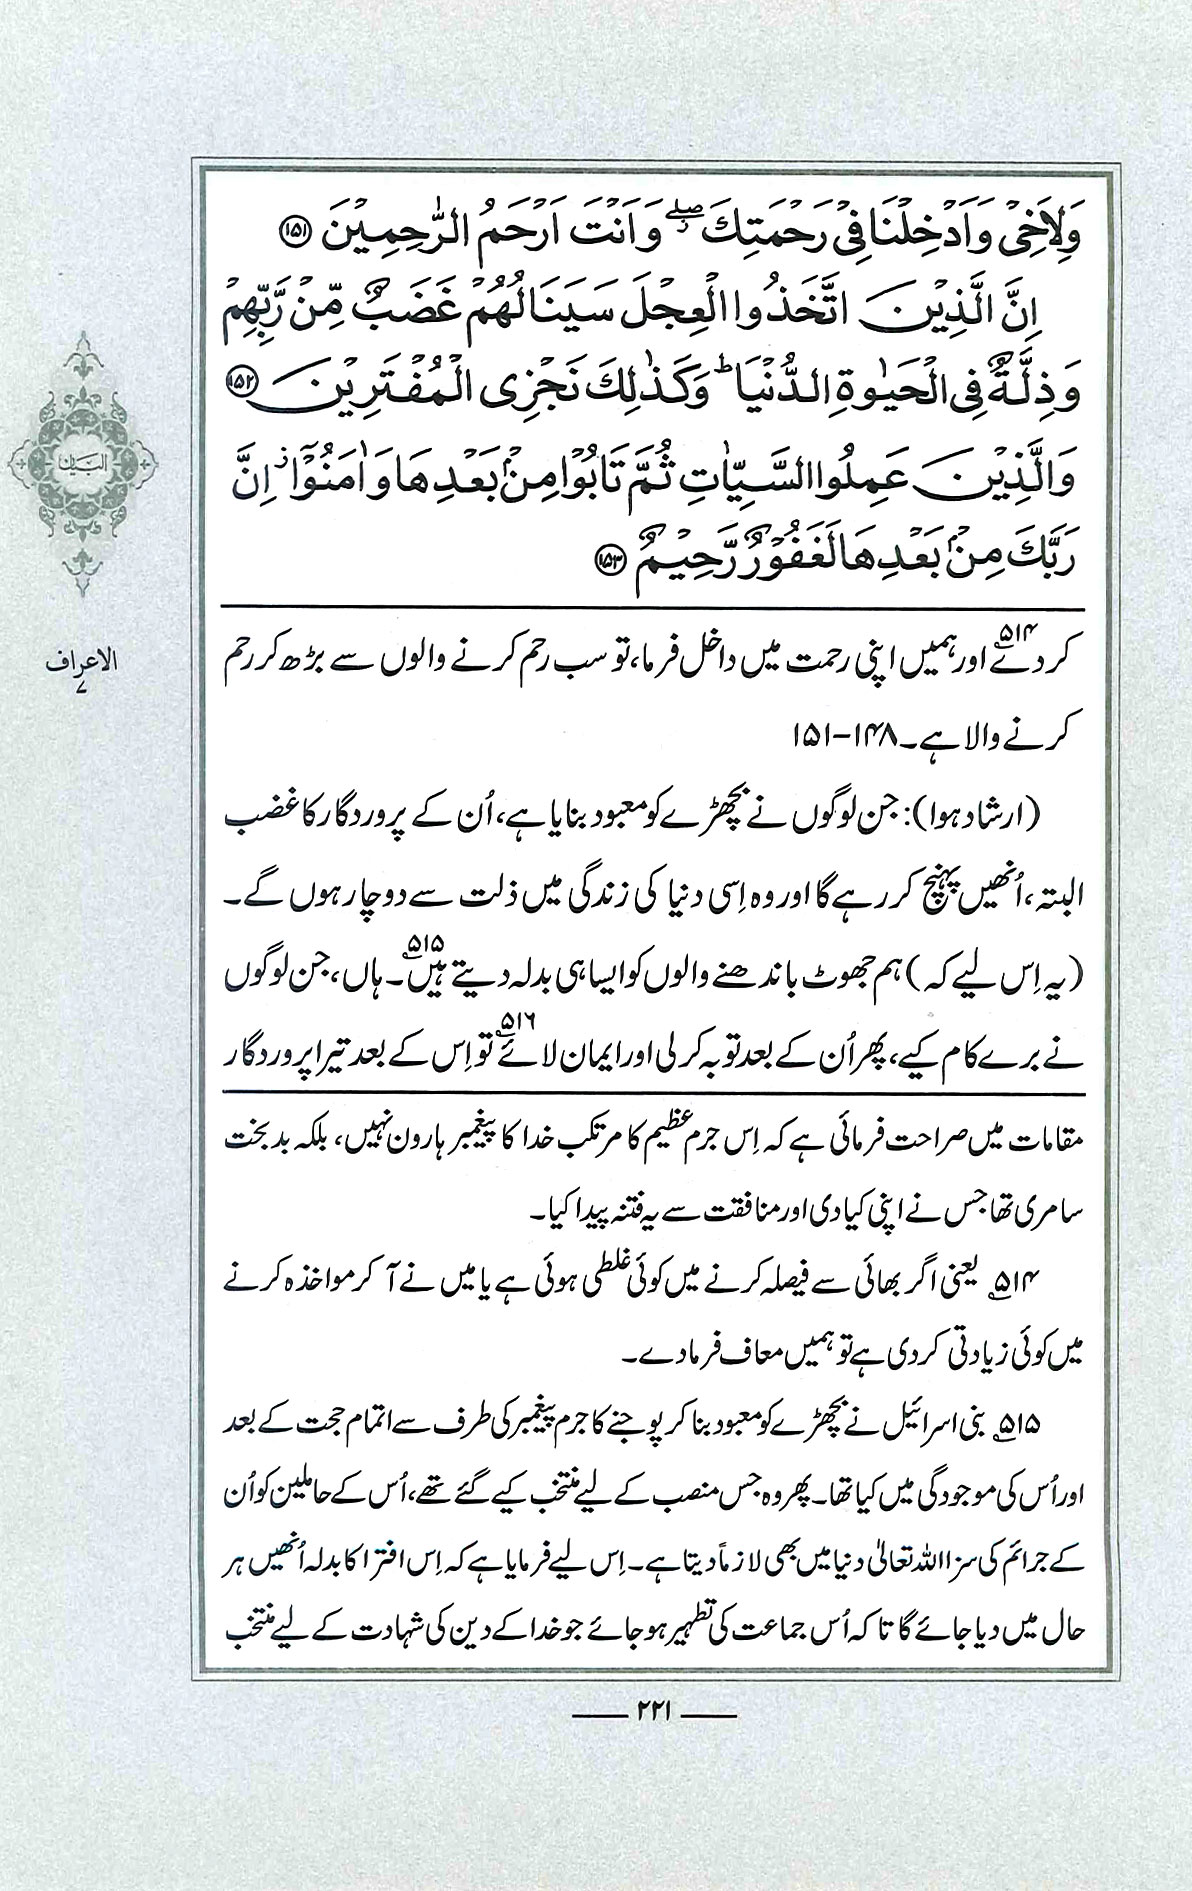 وَلِاَخِیْ وَاَدْخِلْنَا فِیْ رَحْمَتِكَ ۖ وَاَنْتَ اَرْحَمُ الرّٰحِمِیْنَ ﴿۱۵۱﴾
اِنَّ الَّذِیْنَ اتَّخَذُوا الْعِجْلَ سَیَنَالُهُمْ غَضَبٌ مِّنْ رَّبِّهِمْ
وَذِلَّةٌ فِی الْحَیٰوةِ الدُّنْیَا ؕ وَكَذٰلِكَ نَجْزِی الْمُفْتَرِیْنَ ﴿۱۵۲﴾
وَالَّذِیْنَ عَمِلُوا السَّیِّاٰتِ ثُمَّ تَابُوْا مِنْۢ بَعْدِهَا وَاٰمَنُوْۤا ؗ اِنَّ
رَبَّكَ مِنْۢ بَعْدِهَا لَغَفُوْرٌ رَّحِیْمٌ ﴿۱۵۳﴾
البیان
الاعراف ۷
کر دے۵۱۴ اور ہمیں اپنی رحمت میں داخل فرما، تو سب رحم کرنے والوں سے بڑھ کر رحم
کرنے والا ہے۔ ۱۴۸-۱۵۱
(ارشاد ہوا): جن لوگوں نے بچھڑے کو معبود بنایا ہے، اُن کے پروردگار کا غضب
البتہ، اُنھیں پہنچ کر رہے گا اور وہ اِسی دنیا کی زندگی میں ذلت سے دوچار ہوں گے۔
(یہ اِس لیے کہ) ہم جھوٹ باندھنے والوں کو ایسا ہی بدلہ دیتے ہیں۵۱۵۔ ہاں، جن لوگوں
نے برے کام کیے، پھر اُن کے بعد توبہ کر لی اور ایمان لائے۵۱۶ تو اِس کے بعد تیرا پروردگار
مقامات میں صراحت فرمائی ہے کہ اِس جرم عظیم کا مرتکب خدا کا پیغمبر ہارون نہیں، بلکہ بدبخت
سامری تھا جس نے اپنی کیادی اور منافقت سے یہ فتنہ پیدا کیا۔
۵۱۴ یعنی اگر بھائی سے فیصلہ کرنے میں کوئی غلطی ہوئی ہے یا میں نے آ کر مواخذہ کرنے
میں کوئی زیادتی کر دی ہے تو ہمیں معاف فرما دے۔
۵۱۵ بنی اسرائیل نے بچھڑے کو معبود بنا کر پوجنے کا جرم پیغمبر کی طرف سے اتمام حجت کے بعد
اور اُس کی موجودگی میں کیا تھا۔ پھر وہ جس منصب کے لیے منتخب کیے گئے تھے، اُس کے حاملین کو اُن
کے جرائم کی سزا اللہ تعالیٰ دنیا میں بھی لازماً دیتا ہے۔ اِس لیے فرمایا ہے کہ اِس افترا کا بدلہ اُنھیں ہر
حال میں دیا جائے گا تاکہ اُس جماعت کی تطہیر ہو جائے جو خدا کے دین کی شہادت کے لیے منتخب
۲۲۱